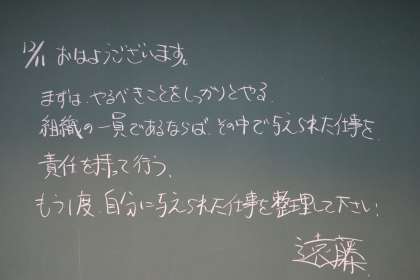 12/11 おはようございます。
まずは、やるべきことをしっかりとやる。
組織の一員であるならば、その中で与えられた仕事を、
責任を持って行う。
もう1度、自分に与えられた仕事を整理して下さい!
遠藤